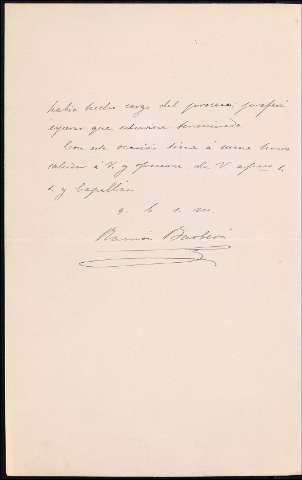 había hecho cargo del proceso, prefirí
esperar que estuviera terminado
Con esta ocasión tiene á suma honra
saludar á V. y ofrecerse de V. affmo s.
s. y Capellán
q. b. s. m.
Ramón Barberá